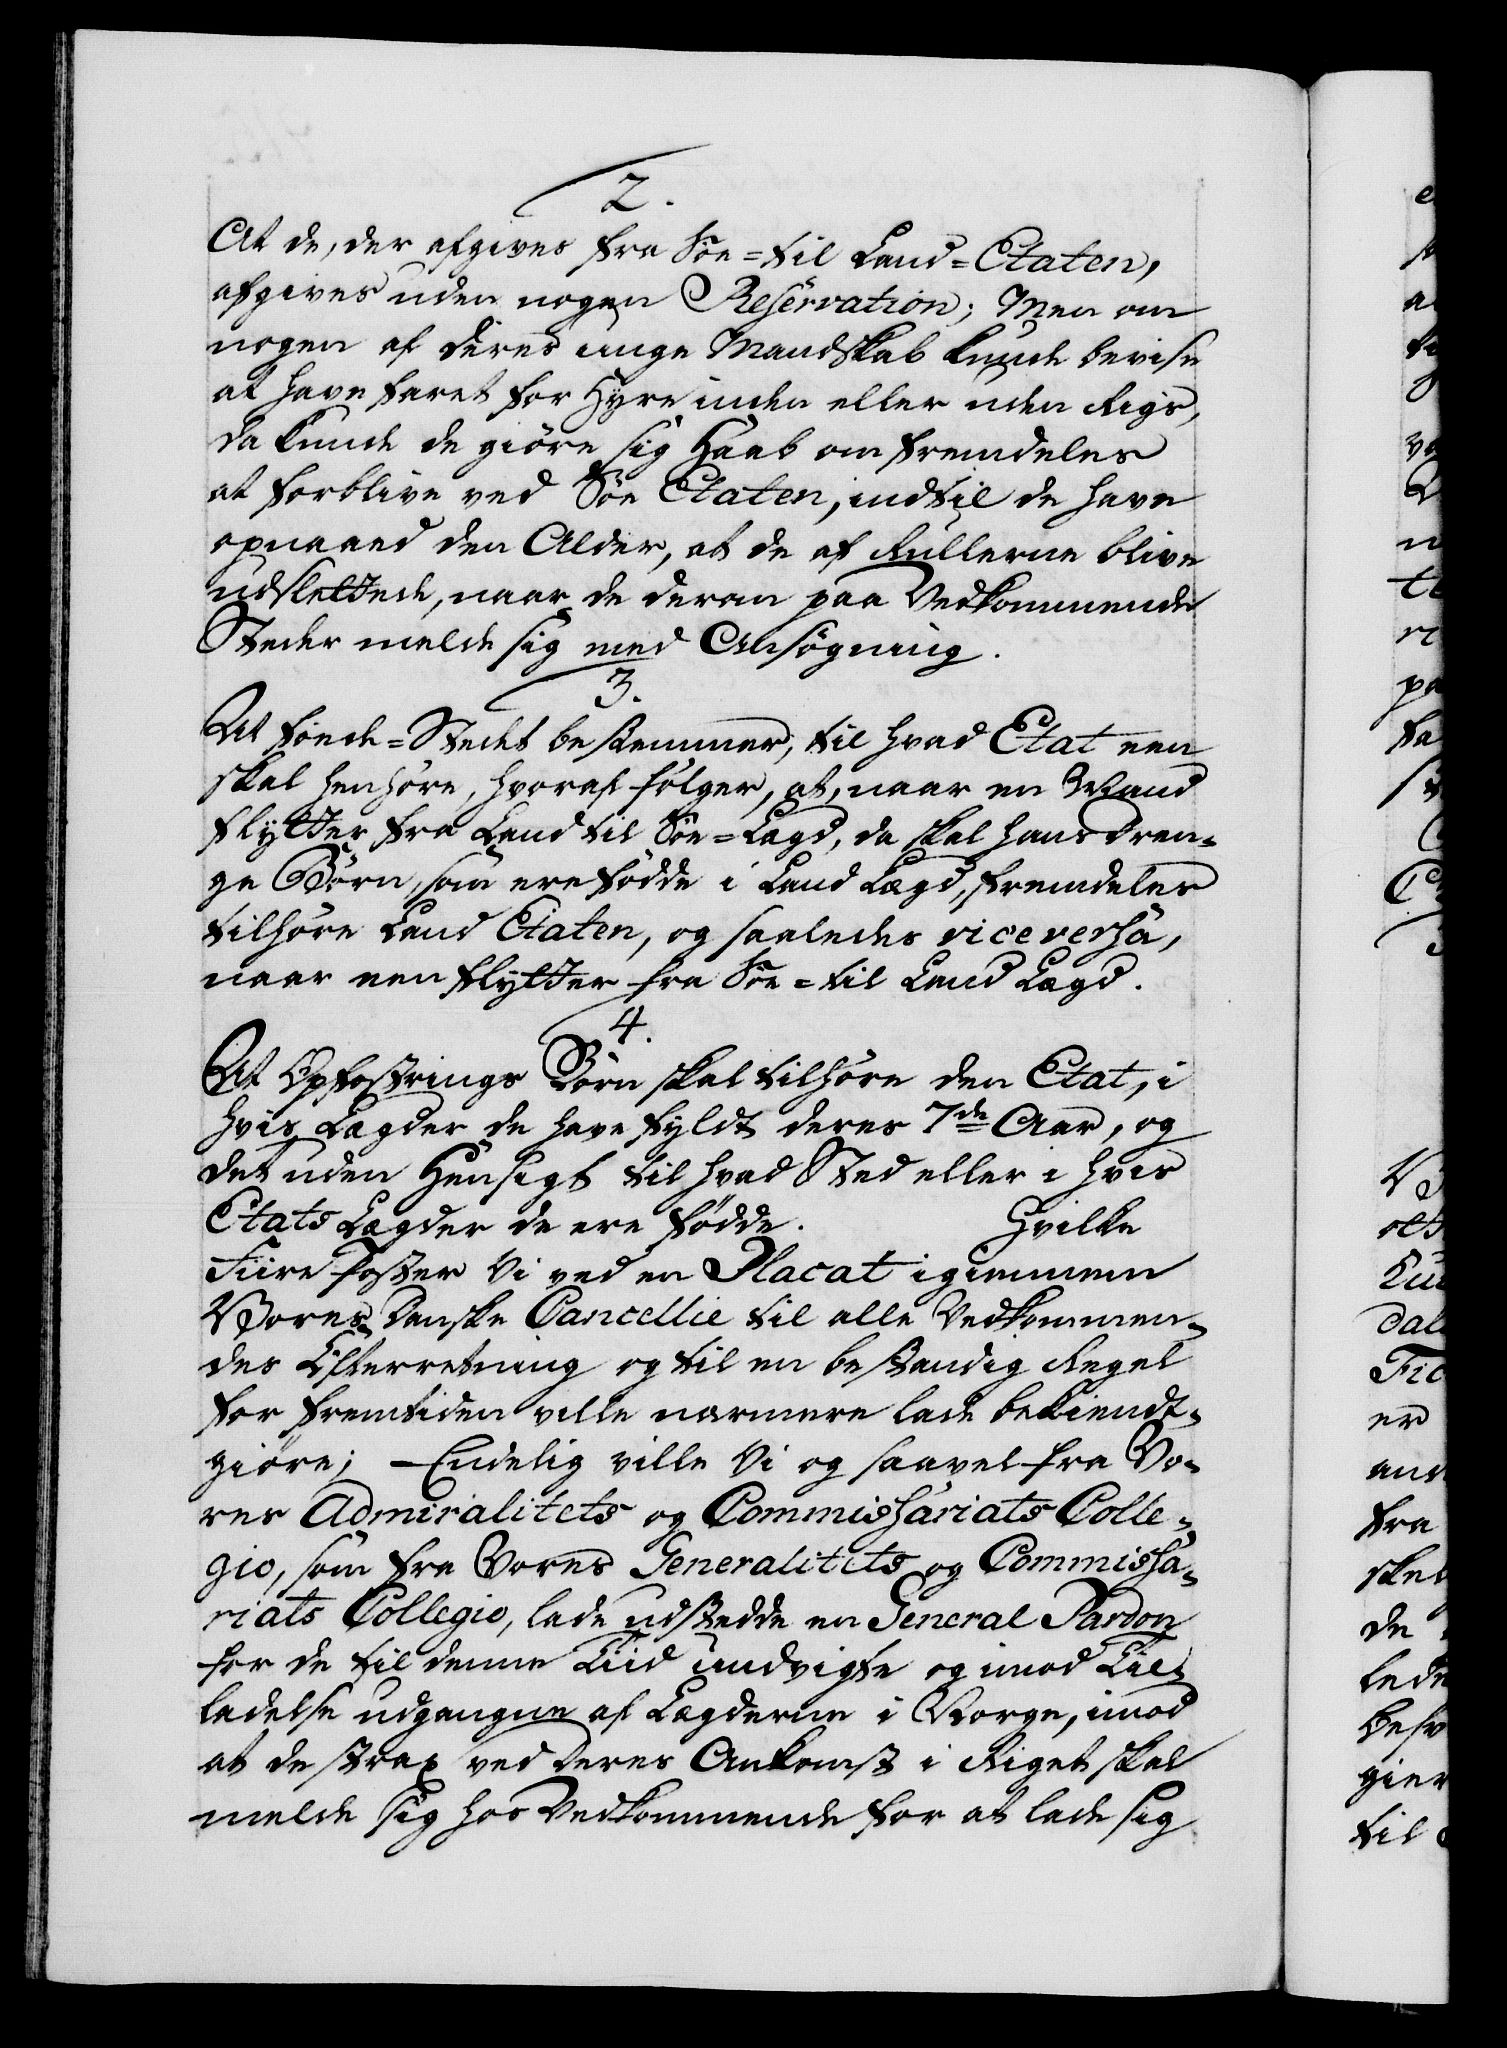 2.
At de, der afgives fra Söe=til Land=Etaten,
afgives uden nogen Reservation; Men om
nogen af deres unge Mandskab kunde bevise
at have faret for Hyre inden eller uden Rigs,
da kunde de giöre sig Haab om fremdeles
at forblive ved Söe Etaten, indtil de have
opnaaed den Alder, at de af Rullerne blive
udslettede, naar de derom paa Vedkommende
Steder melde sig med Ansögning.
3.
At föede=Stedet bestemmer, til hvad Etat een
skal henhöre, hvoraf fölger, at, naar en Mand
flytter fra Land til Söe=Lægd, da skal hans Dren-
ge Börn, som ere födde i Land Lægd, fremdeles
tilhöre Land Etaten, og saaledes vice versa,
naar een flytter fra Söe=til Land Lægd.
4.
At Opfostrings Börn skal tilhöre den Etat, i
hvis Lægder de have fyldt deres 7de Aar, og
det uden Hensigt til hvad Sted eller i hvis
Etats Lægder de ere födde. Hvilke
Fiire Poster Vi ved en Placat igiennem
Vores Danske Cancellie til alle Vedkommen-
des Efterretning og til en bestandig Regel
for fremtiden ville nærmere lade bekiendt-
giöre; Endelig ville Vi og saavel fra Vo-
res Admiralitets og Commissariats Colle-
gio, som fra Vores Generalitets og Commissa-
riats Collegio, lade udstedde en General Pardon
for de til denne Tiid undvigte og imod Til-
ladelse udgangne af Lægderne i Norge, imod
at de strax ved deres Ankomst i Riget skal
melde sig hos Vedkommende for at lade sig